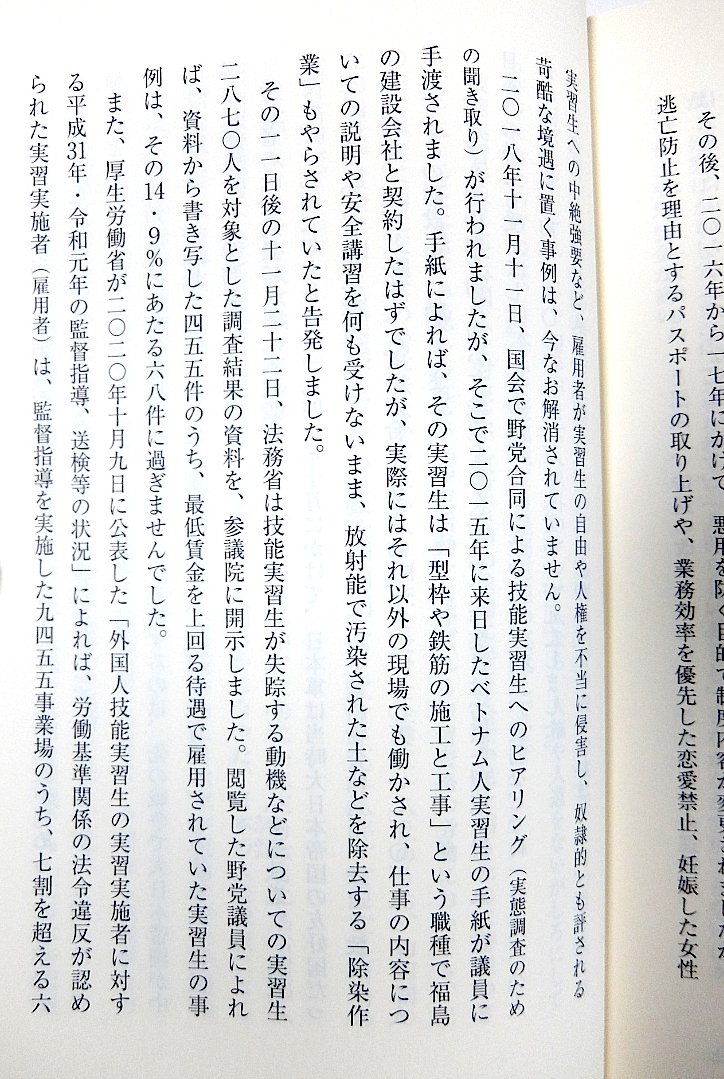 その後、二〇一六年から一七年にかけて、悪用を防ぐ目的で制度内容が変更されましたが
逃亡防止を理由とするパスポートの取り上げや、業務効率を優先した恋愛禁止、妊娠した女性
実習生への中絶強要など、雇用者が実習生の自由や人権を不当に侵害し、奴隷的とも評される
苛酷な境遇に置く事例は、今なお解消されていません。
二〇一八年十一月十一日、国会で野党合同による技能実習生へのヒアリング（実態調査のため
の聞き取り）が行われましたが、そこで二〇一五年に来日したベトナム人実習生の手紙が議員に
手渡されました。手紙によれば、その実習生は「型枠や鉄筋の施工と工事」という職種で福島
の建設会社と契約したはずでしたが、実際にはそれ以外の現場でも働かされ、仕事の内容につ
いての説明や安全講習を何も受けないまま、放射能で汚染された土などを除去する「除染作
業」もやらされていたと告発しました。
その一一日後の十一月二十二日、法務省は技能実習生が失踪する動機などについての実習生
二八七〇人を対象とした調査結果の資料を、参議院に開示しました。閲覧した野党議員によれ
ば、資料から書き写した四五五件のうち、最低賃金を上回る待遇で雇用されていた実習生の事
例は、その14・9％にあたる六八件に過ぎませんでした。
また、厚生労働省が二〇二〇年十月九日に公表した「外国人技能実習生の実習実施者に対す
る平成31年・令和元年の監督指導、送検等の状況」によれば、労働基準関係の法令違反が認め
られた実習実施者（雇用者）は、監督指導を実施した九四五五事業場のうち、七割を超える六